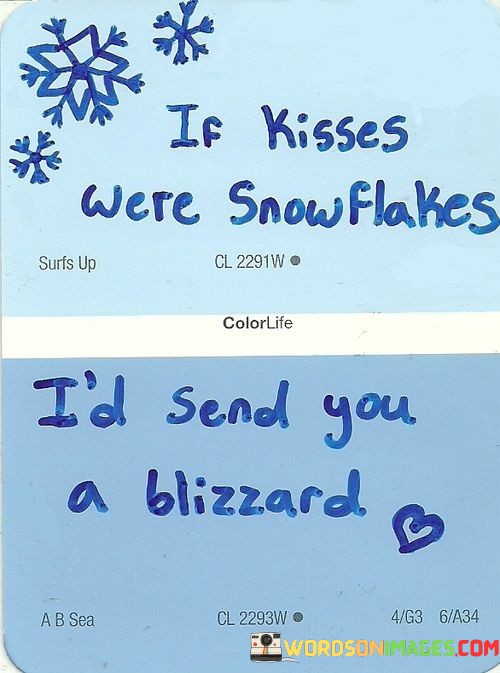 If Kisses
were Snowflakes
Surfs Up CL 2291W
ColorLife
I'd send you
a blizzard
A B Sea CL 2293W 4/G3 6/A34
WORDSONIMAGES.COM